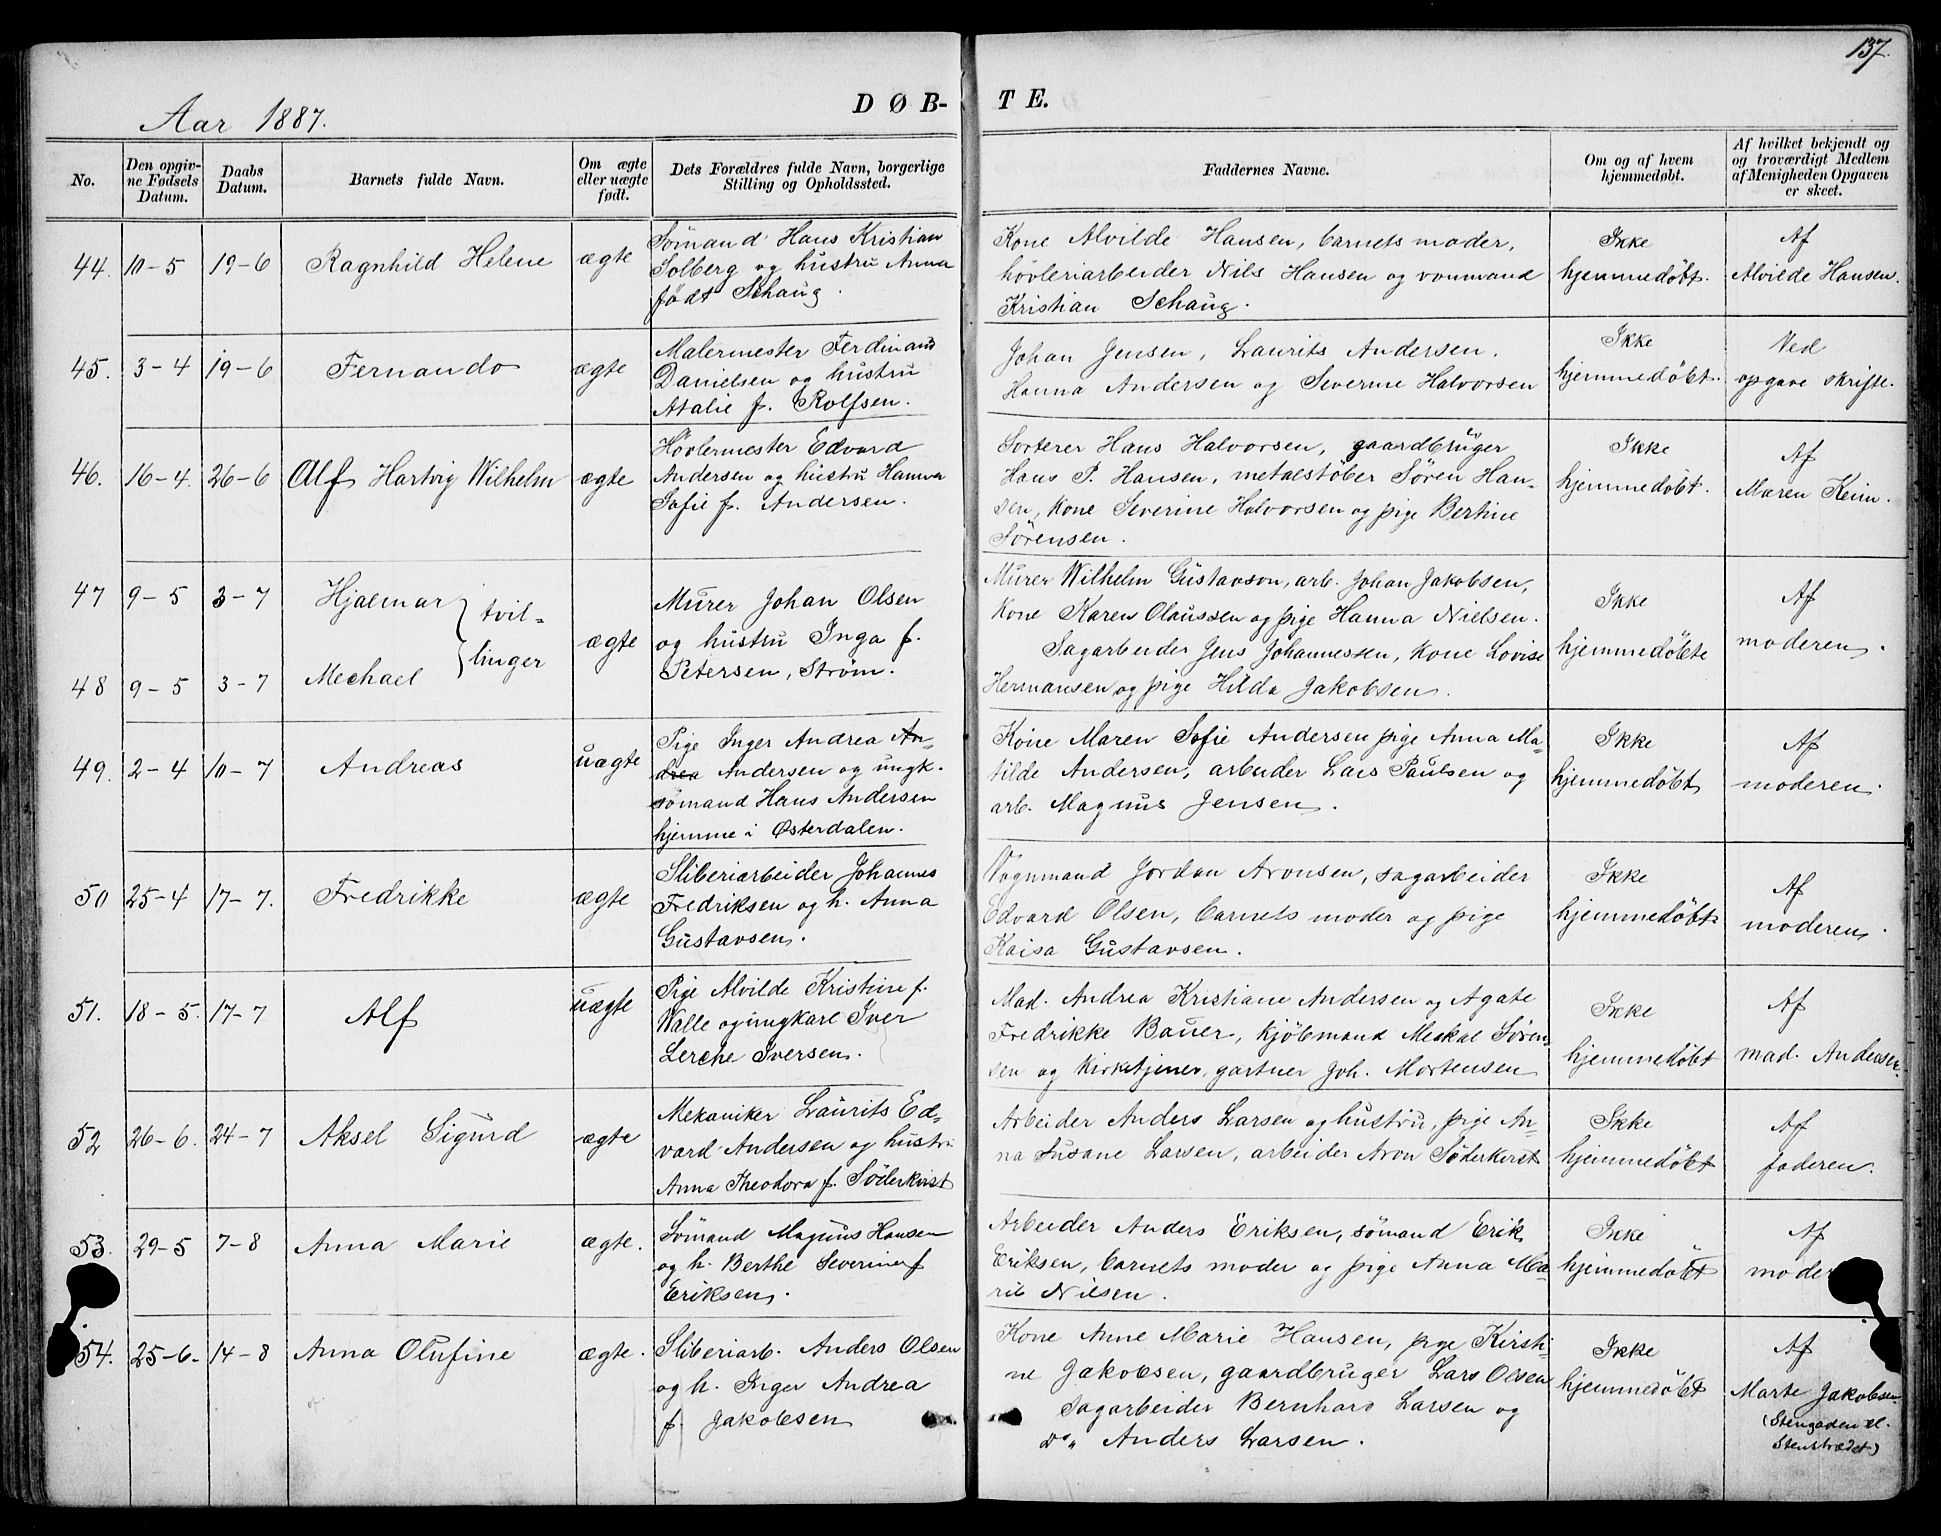 137.
Aar 1887.
DØB-
TE.
No.
Den opgiv-
ne Fødsels
Datum.
Daabs
Datum.
Barnets fulde Navn.
Om ægte
eller uægte
født.
Dets Forældres fulde Navn, borgerlige
Stilling og Opholdssted.
Faddernes Navne.
Om og af hvem
hjemmedøbt.
Af hvilket bekjendt og
og troværdigt Medlem
af Menigheden Opgaven
er skeet.
44. 10-5 19-6 Ragnhild Helene ægte
Sömand Hans Kristian
Solberg og hustru Anna
født Schaug.
Kone Alvilde Hansen, barnets moder,
hövleriarbeider Nils Hansen og vonmand
Kristian Schaug.
Ikke
hjemmedøbt.
Af
Alvilde Hansen.
45. 3-4 19-6 Fernando ægte
Malermester Ferdinand
Danielsen og hustru
Atalie f. Rolfsen.
Johan Jensen, Laurits Andersen.
Hanna Andersen og Severine Halvorsen
Ikke
hjemmedøbt.
Ved
opgave skrifte.
46. 16-4. 26-6 Alf Hartvig Wilhelm ægte
Høvlermester Edvard
Andersen og hustru Hanna
Sofie f. Andersen.
Sorterer Hans Halvorsen, gaardbruger
Hans P. Hansen, metalstöber Sören Han-
sen, kone Severine Halvorsen og pige Bertine
Sörensen.
Ikke
hjemmedøbt.
Af
Maren Keim.
47 9-5 3-7 Hjalmar
48 9-5 3-7 Mechael
tvil-
linger
ægte
Murer Johan Olsen
og hustru Inga f.
Petersen, Strøm.
Murer Wilhelm Gustavson, arb. Johan Jakobsen,
kone Karen Olaussen og pige Hanna Nielsen.
Sagarbeider Jens Johannessen, kone Lovise
Hermansen og pige Hilda Jakobsen.
Ikke
hjemmedøbte
Af
moderen.
49. 2-4 10-7 Andreas uægte
Pige Inger Andrea An-
drea Andersen og ungk.
sömand Hans Andersen
hjemme i Østerdalen.
Kone Maren Sofie Andersen pige Anna Ma-
tilde Andersen, arbeider Lars Paulsen og
arb. Magnus Jensen.
Ikke
hjemmedøbt
Af
moderen.
50 25-4 17-7. Fredrikke ægte
Sliberiarbeider Johannes
Fredriksen og h. Anna
Gustavsen.
Vognmand Jordan Aronsen, sagarbeider
Edvard Olsen, barnets moder og pige
Kaisa Gustavsen.
Ikke
hjemmedøbt
Af
moderen.
51. 18-5. 17-7 Alf uægte
Pige Alvilde Kristine f.
Walle og ungkarl Iver
Lerche Iversen.
Mad. Andrea Kristiane Andersen og Agate
Fredrikke Bauer, kjöbmand Meskal Sören-
sen og kirketjener, gartner Joh. Mortensen
Ikke
hjemmedøbt
Af
mad. Andersen.
52 26-6. 24-7 Aksel Sigurd ægte
Mekaniker Laurits Ed-
vard Andersen og hustru
Anna Theodora f. Söderkvist
Arbeider Anders Larsen og hustru, pige An-
na Susane Larsen, arbeider Aron Söderkvist
Ikke
hjemmedøbt
Af
faderen.
53. 29-5 7-8 Anna Marie ægte.
Sömand Magnus Hansen
og h. Berthe Severine f
Eriksen.
Arbeider Anders Eriksen, sömand Erik
Eriksen, barnets moder og pige Anna Ma-
rie Nilsen.
Ikke
hjemmedøbt
Af
moder
54. 25-6- 14-8 Anna Olufine ægte.
Sliberiarb. Anders Olsen
og h. Inger Andrea
f. Jakobsen
Kone Anne Marie Hansen, pige Kirsti-
ne Jakobsen, gaardbruger Lars Olsen
Sagarbeider Bernhard Larsen og
Do. Anders Larsen.
Ikke
hjemmedøbt
Af
Marte Jakobsen
(Stengaden el.
Stenstrædet)